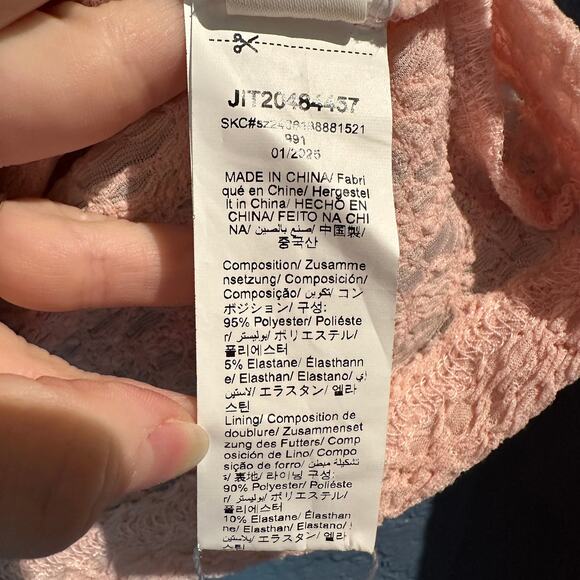 JIT20484457
SKC#sz2408188881521
991
01/2025
MADE IN CHINA/ Fabri
qué en Chine/ Hergestel
lt in China/ HECHO EN
CHINA/ FEITO NA CHI
NA/ صنع بالصين/ 中国製/
중국산
Composition/ Zusamme
nsetzung/ Composición/
Composição/ تكوين/ コン
ポジション/ 구성:
95% Polyester/ Polièste
r/ بوليستر/ ポリエステル/
폴리에스터
5% Elastane/ Élasthann
e/ Elasthan/ Elastano/ إي
لاستين/ エラスタン/ 엘라
스틴
Lining/ Composition de
doublure/ Zusammenset
zung des Futters/ Comp
osición de Lino/ Compo
sição de forro/ تشكيلة مبطن
/ 裏地/ 라이닝 구성:
90% Polyester/ Polièste
r/ بوليستر/ ポリエステル/
폴리에스터
10% Elastane/ Élasthan
ne/ Elasthan/ Elastano/
يلاستين/ エラスタン/ 엘라
스틴